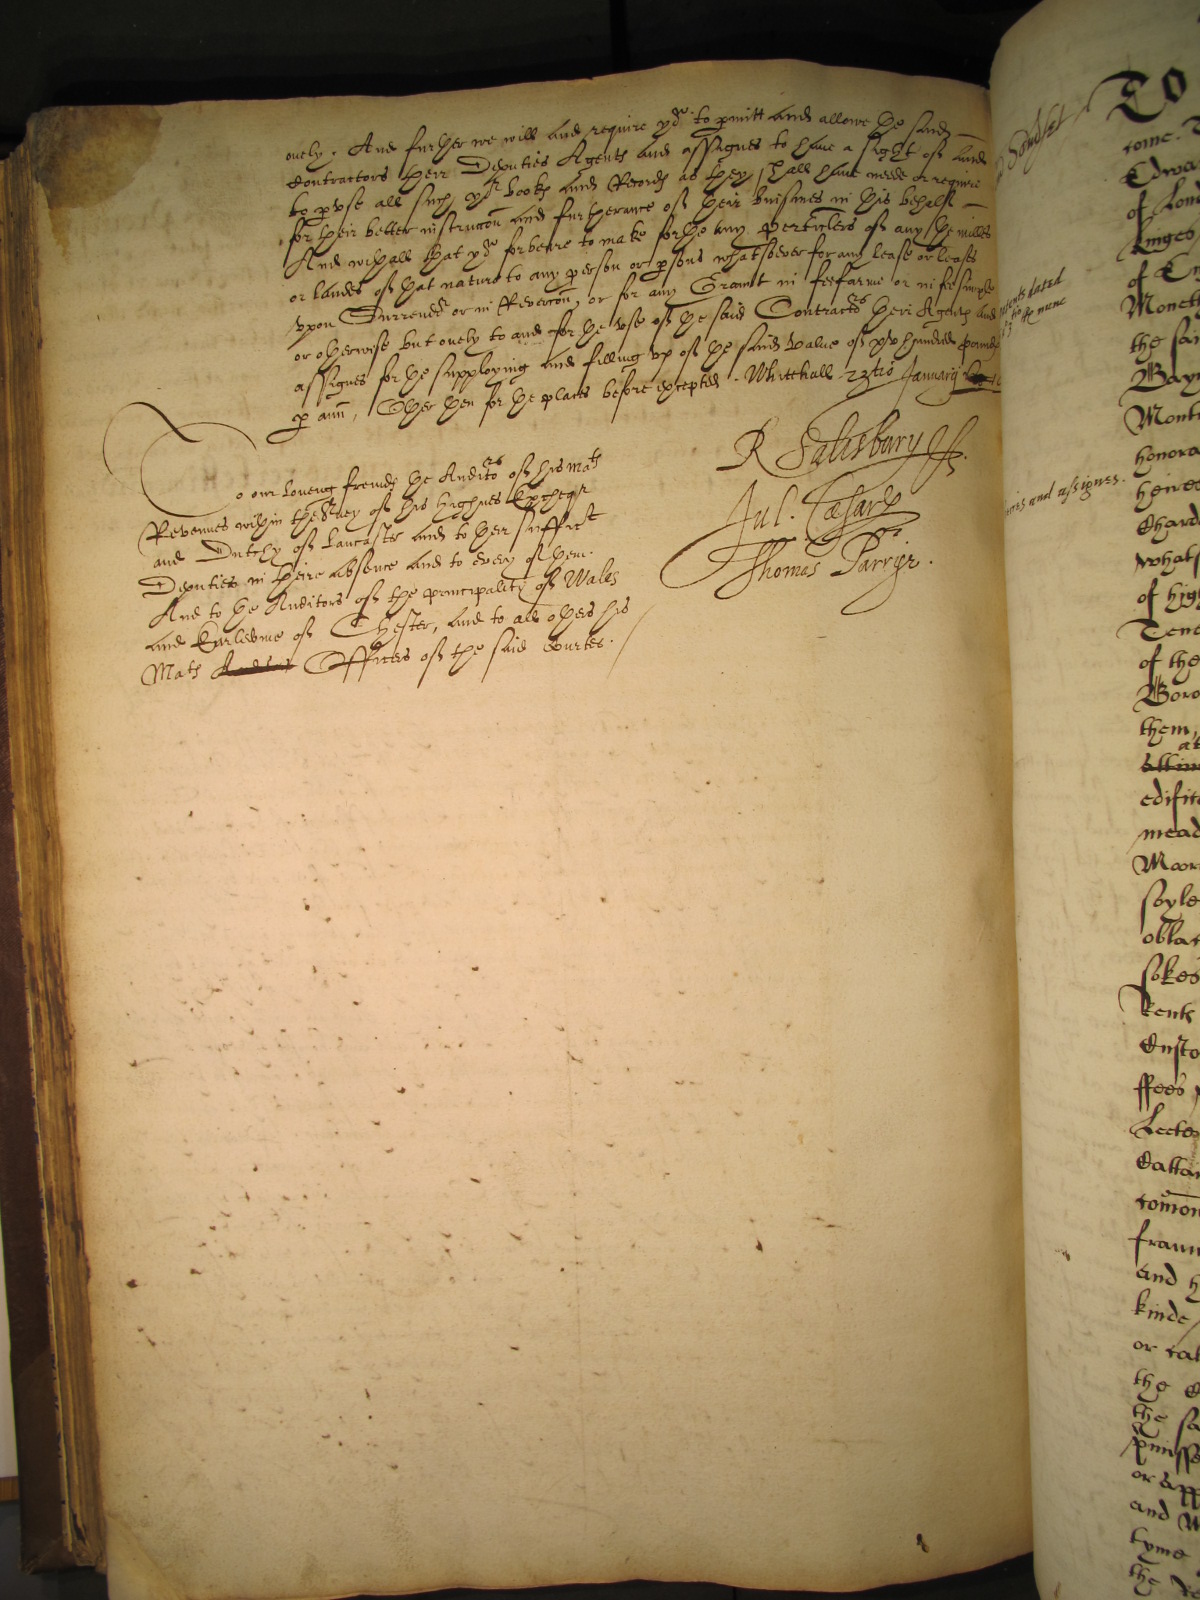 onely. And further we will and require yow to pmitt and allowe the said
Contractors their Deputies Agents and assignes to have a sight of and
to pvse all such yor Books and Records as they shall have neede or require
for their better instruccon and furtherance of their buisines in this behalf
And withall that yow forbeare to make forthe any perticlers of any the milles
or landes of that nature to any person or psons whatsoever for any lease or leases
vpon Surrender or in Revercon, or for any Graunt in feefarme or in fee simple
or otherwise but onely to and for the vse of the said Contractors their Agents and
assignes for the supplying and filling vp of the said value of hundred pounds
p ann, Other then for the places before excepted. Whitehall 23tio January
R Salisbury
Jul. Cæsar
Thomas Parry.
To our loveng freinds the Auditors of his mats
Revenues within the Survey of his highnes Excheqr
and Dutchy of Lancaster and to their suffict
Deputies in theire absence and to every of them.
And to the Auditors of the principality of Wales
and Earledome of Chester, and to all others his
Mats Officers of the said Courtes.
To
come.
Edwa
of Lon
Kinges
of En
Monet
the sai
Bayn
Mont
honora
heires
Chard
whats
of high
Tene
of the
Boro
them,
at
edific
mead
Moor
soyle
oblac
sokes
Rents
Custo
ffees
Leete
Cattan
comon
fraun
and h
kinde
or cal
the
the sa
pmisse
or app
and
tyme
the
patents dated
heires and assignes.